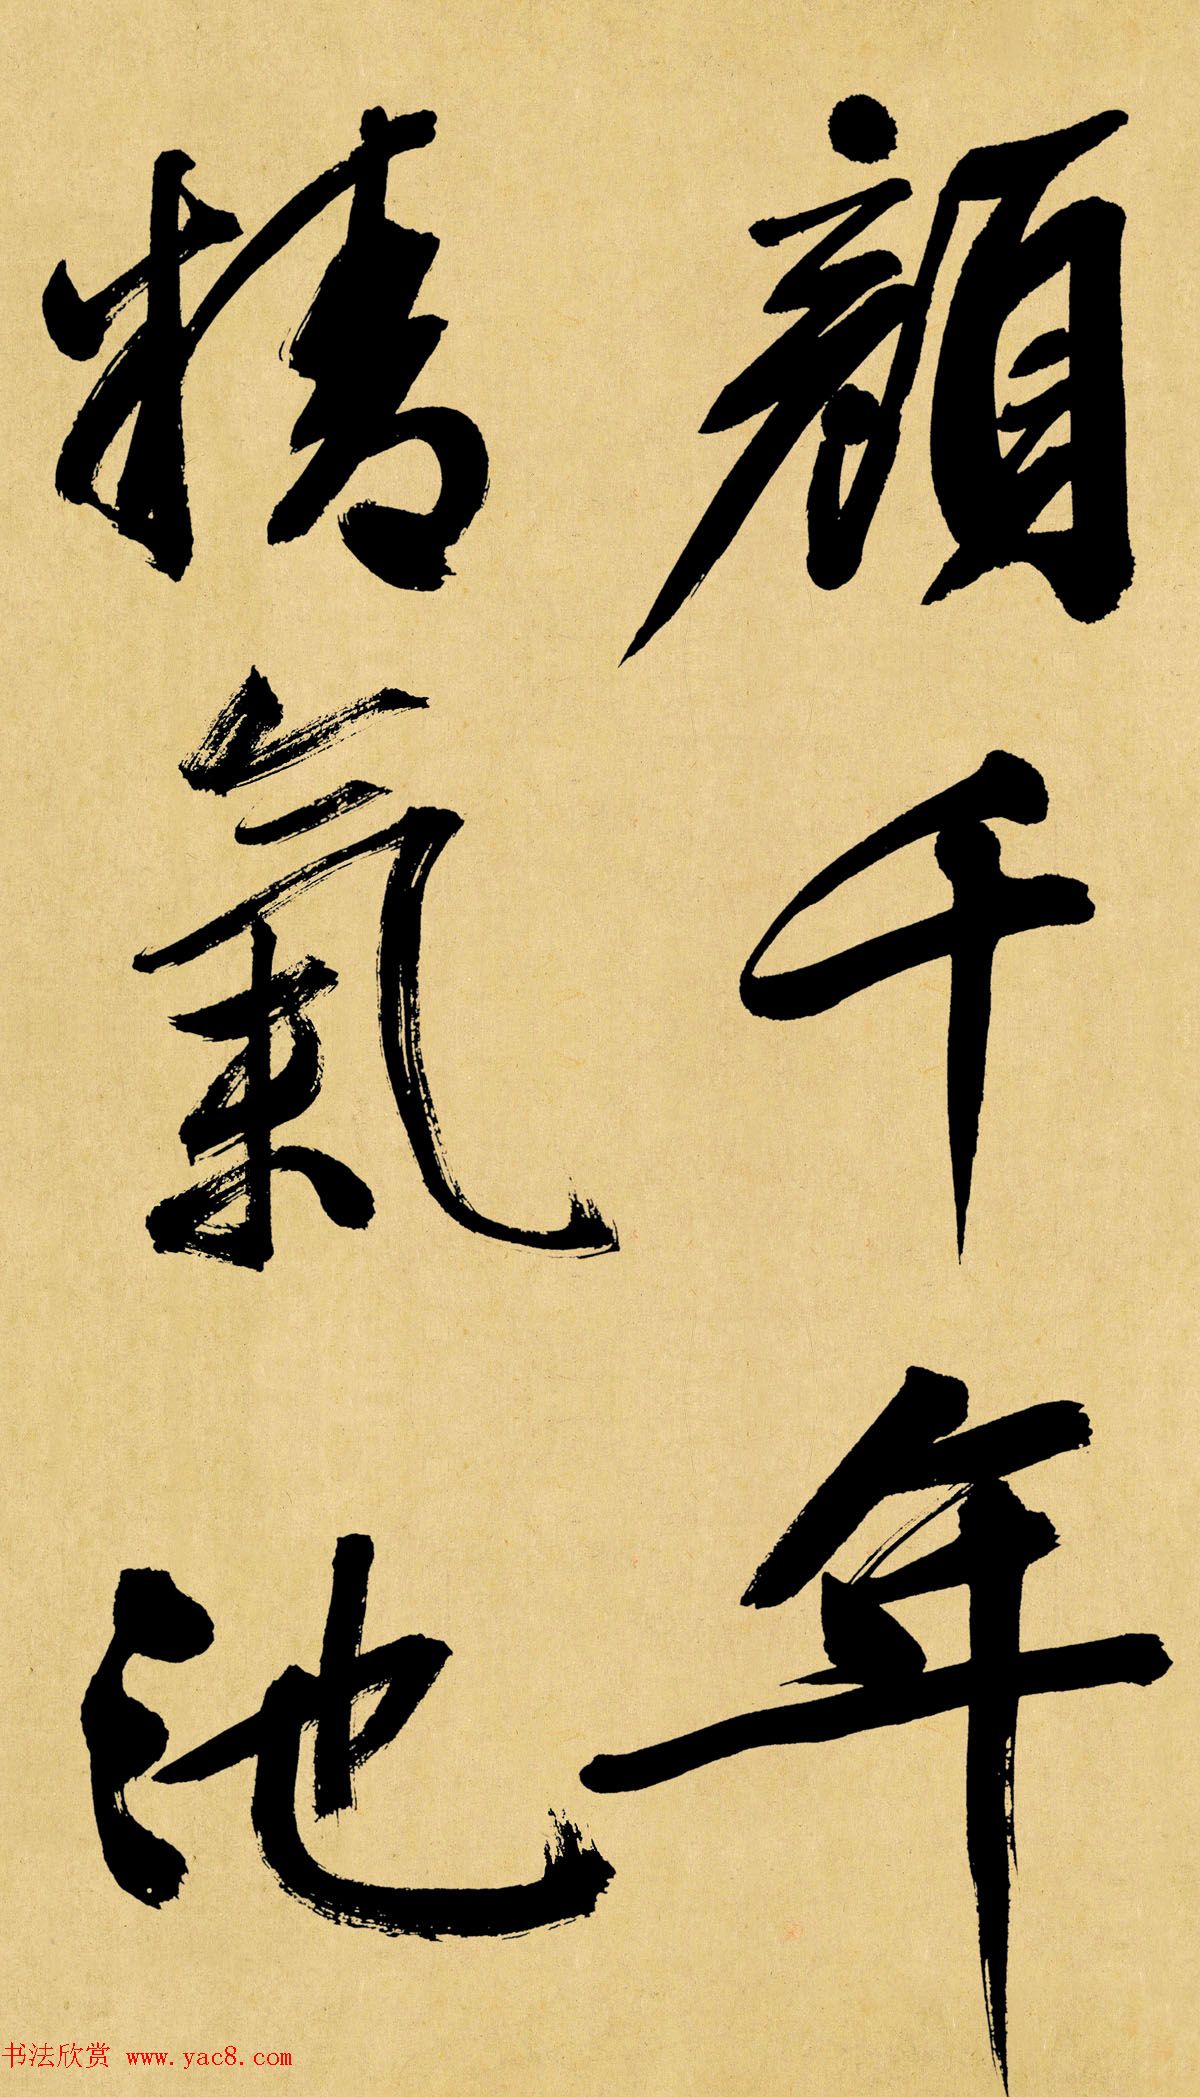 顔千年
精氣池
书法欣赏 www.yac8.com